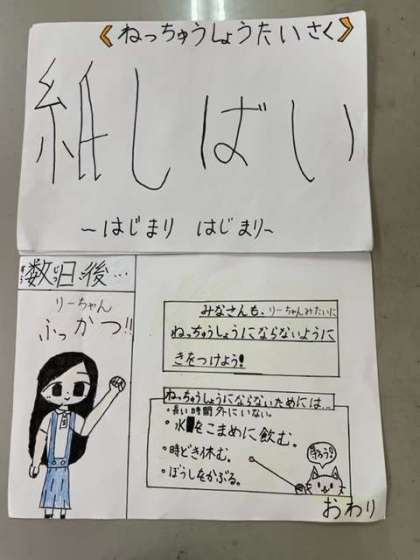 《ねっちゅうしょうたいさく》
紙しばい
~はじまり はじまり~
数日後…
すう じつ ご
りーちゃん
ふっかつ!!
みなさんも、りーちゃんみたいに
ねっちゅうしょうにならないように
きをつけよう!
ねっちゅうしょうにならないためには…
・長い時間外にいない。
・水をこまめに飲む。
・時どき休む。
・ぼうしをかぶる。
守ろう!
おわり